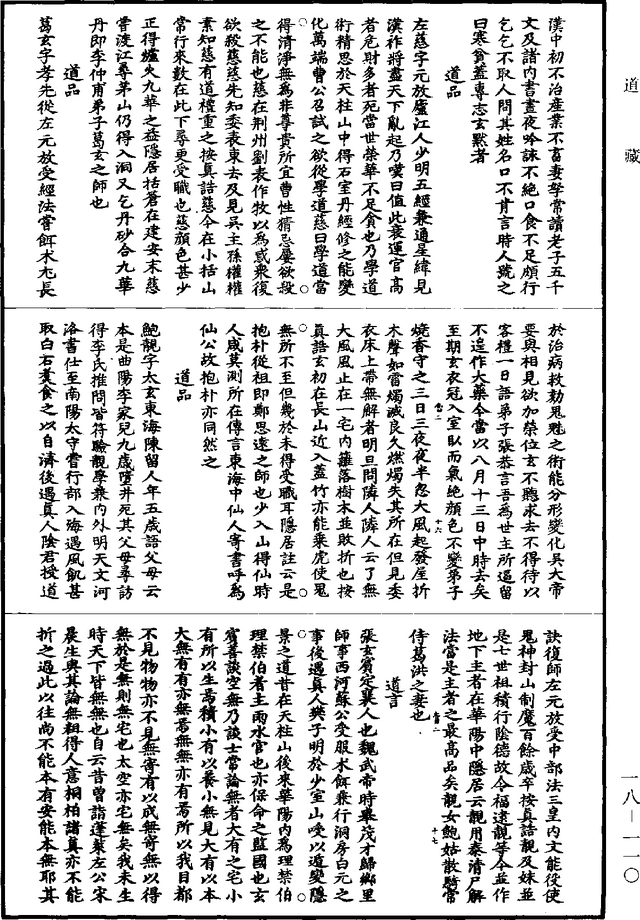 道藏
漢中初不治產業不畜妻孥常讀老子五千
文及諸內書晝夜吟誦不絕口食不足頗行
乞乞不取人問其姓名口不肯言時人號之
曰寒貧蓋專志玄默者
道品
左慈字元放廬江人少明五經兼通星緯見
漢祚將盡天下亂起乃嘆曰值此衰運官高
者危財多者死當世榮華不足貪也乃學道
術精思於天柱山中得石室丹經修之能變
化萬端曹公召試之欲從學道慈曰學道當
得清淨無為非尊貴所宜曹性猜忌屢欲殺
之不能也慈在荊州劉表作牧以為惑眾復
欲殺慈慈先知委表東去及見吳主孫權權
素知慈有道禮重之按真誥慈今在小括山
常行來數在此下尋更受職也慈顏色甚少
正得爐火九華之益隱居括蒼在建安末慈
嘗渡江尋茅山仍得入洞又乞丹砂合九華
丹即李仲甫弟子葛玄之師也
道品
葛玄字孝先從左元放受經法嘗餌朮尤長
於治病救劾鬼魅之術能分形變化吳大帝
要與相見欲加榮位玄不聽求去不得待以
客禮一日語弟子張恭言吾為世主所逼留
不遑作大藥今當以八月十三日中時去矣
至期玄衣冠入室臥而氣絕顏色不變弟子
燒香守之三日三夜夜半忽大風起發屋折
木聲如雷燭滅良久燃燭失其所在但見委
衣床上帶無解者明旦問隣人隣人云了無
大風風止在一宅內籬落樹木並敗折也按
真誥玄初在長山近入蓋竹亦能乘虎使鬼
無所不至但幾於未得受職耳隱居註云是
抱朴從祖即鄭思遠之師也少入山得仙時
人咸莫測所在傳言東海中仙人寄書呼為
仙公故抱朴亦同然之
道品
鮑靚字太玄東海陳留人年五歲語父母云
本是曲陽李家兒九歲墮井死其父母尋訪
得李氏推問皆符驗靚學兼內外明天文河
洛書仕至南陽太守嘗行部入海遇風飢甚
取白石煮食之以自濟後遇真人陰君授道
訣復師左元放受中部法三皇內文能役使
鬼神封山制魔百餘歲卒按真誥靚及妹並
是七世祖積行陰德故令福逮靚等今並作
地下主者在華陽中隱居云靚用泰清尸解
法當是主者之最高品矣靚女鮑姑散騎常
侍葛洪之妻也
道言
張玄賓定襄人也魏武帝時舉茂才歸鄉里
師事西河蘇公受服朮餌兼行洞房白元之
事後遇真人樊子明於少室山唆以遁變隱
景之道昔在天柱山後來華陽內為理禁伯
理禁伯者主雨水官也亦保命之監國也玄
賓善談空無乃談士常論無者大有之宅小
有所以生焉積小有以養小無見大有以本
大無有有亦無焉無無亦有焉所以我目都
不見物物亦不見無寄有以成無寄無以得
無於是無則無宅也太空亦宅無矣我未生
時天下皆無無也自云昔曾詣蓬萊左公宋
晨生與其論無粗得人意桐柏諸真亦不能
折之過此以往尚不能本有安能本無耶其
一八—一一〇